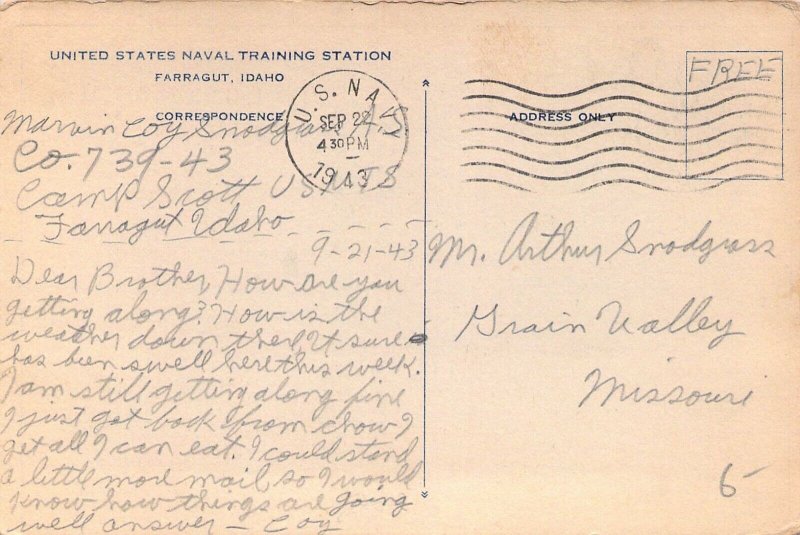 UNITED STATES NAVAL TRAINING STATION
FARRAGUT, IDAHO
CORRESPONDENCE
Marvin Coy Snodgrass A.S.
Co. 739-43
Camp Scott USNTS
Farragut Idaho
9-21-43
Dear Brother, How are you
getting along? How is the
weather down there? It sure
has been swell here this week.
I am still getting along fine
I just got back from chow I
get all I can eat. I could stand
a little more mail so I would
know how things are going
well answer - Coy
U.S. NAVY
SEP 22
4 30 PM
1943
ADDRESS ONLY
FREE
Mr. Arthur Snodgrass
Grain Valley
Missouri
6-